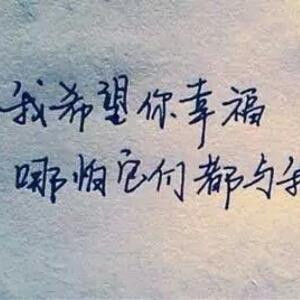 我希望你幸福
哪怕它们都与我